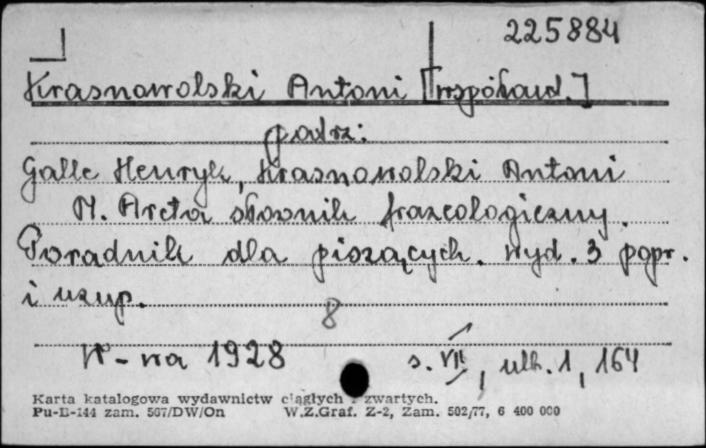 225884
Krasnowolski Antoni [współaut.]
patrz:
Galle Henryk, Krasnowolski Antoni
M. Arcta słownik frazeologiczny.
Poradnik dla piszących. Wyd. 3 popr.
i uzup.
8
W-wa 1928 s. VII, nlb. 1, 164
Karta katalogowa wydawnictw ciągłych i zwartych.
Pu-B-144 zam. 567/DW/On W.Z.Graf. Z-2, Zam. 502/77, 6 400 000